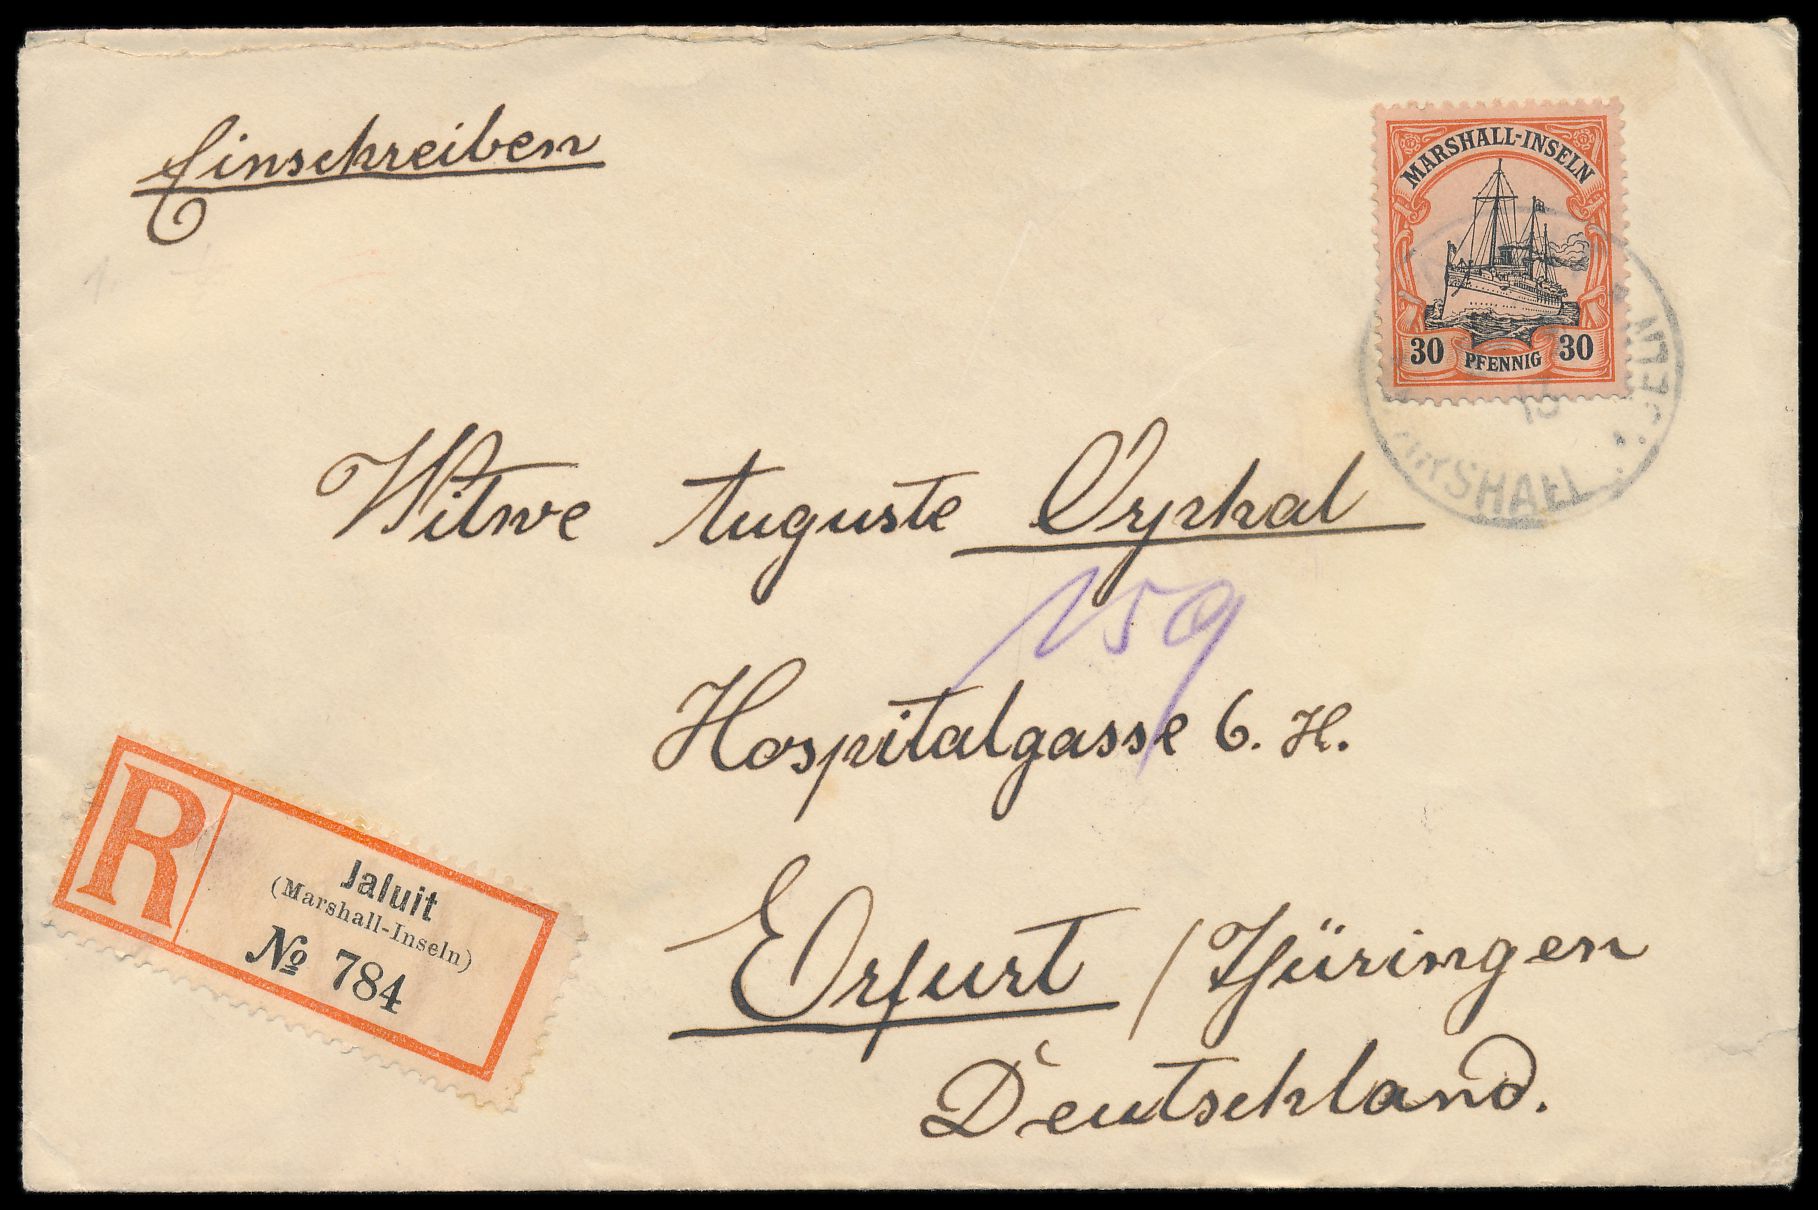 Einschreiben
MARSHALL-INSELN
30 PFENNIG 30
Witwe Auguste Orphal
159
Hospitalgasse 6. H.
R
Jaluit
(Marshall-Inseln)
№ 784
Erfurt / Thüringen
Deutschland.